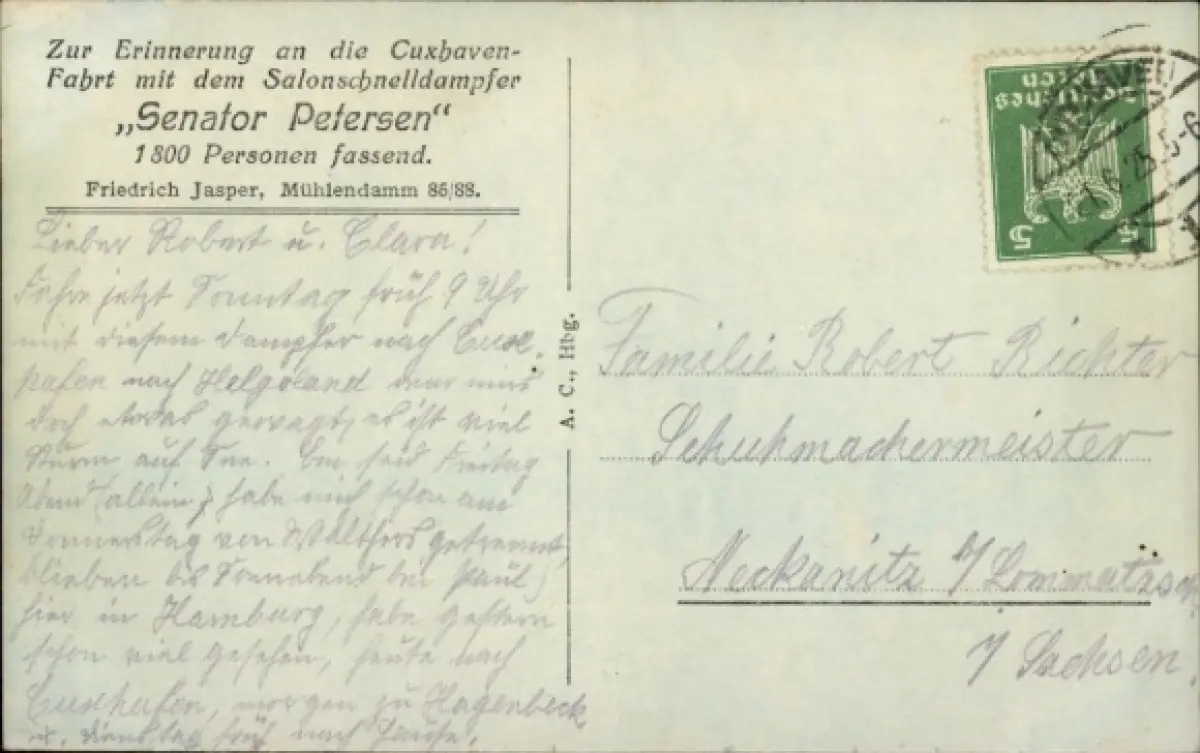 Zur Erinnerung an die Cuxhaven-
Fahrt mit dem Salonschnelldampfer
„Senator Petersen“
1800 Personen fassend.
Friedrich Jasper, Mühlendamm 86/88.
Lieber Robert u. Clara!
Fahre jetzt Sonntag früh 9 Uhr
mit diesem Dampfer nach Cux-
hafen nach Helgoland war mirs
doch etwas gewagt, es ist viel
Sturm auf See. Bin seid Freitag
Abend (allein, habe mich schon am
Donnerstag von Walthers getrennt,
blieben bis Sonnabend bei Paul)
hier in Hamburg, habe gestern
schon viel gesehen, heute nach
Cuxhafen, morgen zu Hagenbeck
u. Dienstag früh nach Hause.
A. C., Hbg.
Deutsches
Reich
5 5
CUXHAVEN
21.6.25.5-6
Familie Robert Richter
Schuhmachermeister
Neckanitz b/ Lommatzsch
i/ Sachsen